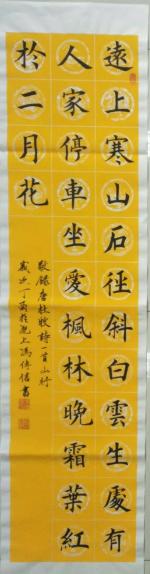 遠上寒山石徑斜白雲生處有
人家停車坐愛楓林晚霜葉紅
於二月花
敬録唐杜牧詩一首山行
歲次丁酉上馮傳信書